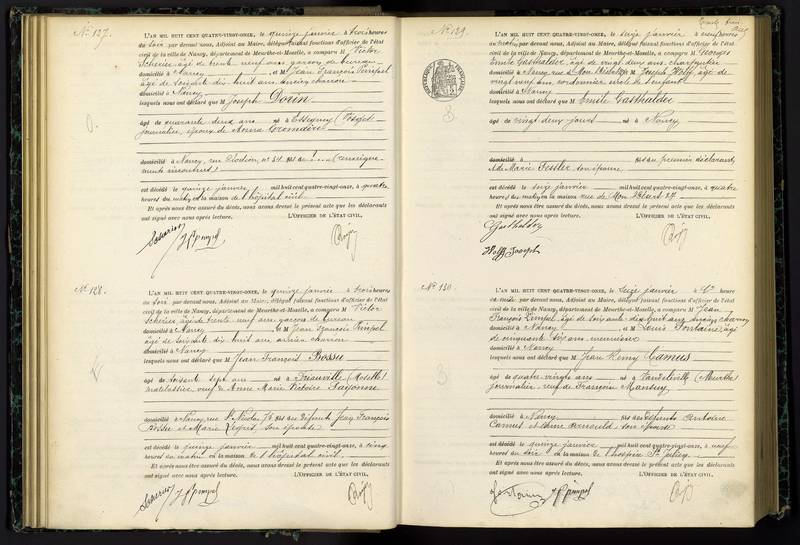 N° 127.
L'AN MIL HUIT CENT QUATRE-VINGT-ONZE, le quinze janvier à trois heures
du soir par devant nous, Adjoint au Maire, délégué faisant fonctions d'officier de l'état
civil de la ville de Nancy, département de Meurthe-et-Moselle, a comparu M Victor
âgé de trente neuf ans garçon de bureau
domicilié à Nancy et M Jean François Pimpel
âgé de soixante dix huit ans ancien charron
domicilié à Nancy
lesquels nous ont déclaré que M Joseph Dorin
âgé de quarante deux ans né à (Vosges)
journalier, époux de Anna
domicilié à Nancy, rue n° 54 fils de (renseigne-
ments inconnus)
est décédé le quinze janvier mil huit cent quatre-vingt-onze, à quatre
heures du matin en la maison de l'hôpital civil
Et après nous être assuré du décès, nous avons dressé le présent acte que les déclarants
ont signé avec nous après lecture. L'OFFICIER DE L'ÉTAT CIVIL,
JfPimpel
N° 128.
L'AN MIL HUIT CENT QUATRE-VINGT-ONZE, le quinze janvier à trois heures
du soir par devant nous, Adjoint au Maire, délégué faisant fonctions d'officier de l'état
civil de la ville de Nancy, département de Meurthe-et-Moselle, a comparu M Victor
âgé de trente neuf ans garçon de bureau
domicilié à Nancy et M Jean François Pimpel
âgé de soixante dix huit ans ancien charron
domicilié à Nancy
lesquels nous ont déclaré que M Jean François Bossu
âgé de soixante sept ans né à Friauville (Moselle)
matelassier, veuf de Anne Marie Victoire
domicilié à Nancy, rue St Nicolas 76 fils des défunts Jean François
Bossu et Marie son épouse
est décédé le quinze janvier mil huit cent quatre-vingt-onze, à cinq
heures du matin en la maison de l'hôpital civil
Et après nous être assuré du décès, nous avons dressé le présent acte que les déclarants
ont signé avec nous après lecture. L'OFFICIER DE L'ÉTAT CIVIL,
JfPimpel
N° 129.
L'AN MIL HUIT CENT QUATRE-VINGT-ONZE, le seize janvier à neuf heures
du matin par devant nous, Adjoint au Maire, délégué faisant fonctions d'officier de l'état
civil de la ville de Nancy, département de Meurthe-et-Moselle, a comparu M Georges
Emile Gasthalder âgé de vingt deux ans charpentier
domicilié à Nancy, rue de Mon Désert 27 et M Joseph Wolff âgé de
vingt neuf ans, cordonnier, oncle de l'enfant
domicilié à Nancy
lesquels nous ont déclaré que M Emile Gasthalder
âgé de vingt deux jours né à Nancy
domicilié à fils du premier déclarant
& de Marie Fessler son épouse
est décédé le seize janvier mil huit cent quatre-vingt-onze, à quatre
heures du matin en la maison rue de Mon Désert 27
Et après nous être assuré du décès, nous avons dressé le présent acte que les déclarants
ont signé avec nous après lecture. L'OFFICIER DE L'ÉTAT CIVIL,
Gasthalder
Wolff Joseph
N° 130.
L'AN MIL HUIT CENT QUATRE-VINGT-ONZE, le seize janvier à heure
par devant nous, Adjoint au Maire, délégué faisant fonctions d'officier de l'état
civil de la ville de Nancy, département de Meurthe-et-Moselle, a comparu M Jean
François Pimpel âgé de soixante dix huit ans ancien charron
domicilié à Nancy et M Louis Fontaine âgé
de cinquante six ans menuisier
domicilié à Nancy
lesquels nous ont déclaré que M Jean Remy Camus
âgé de quatre vingts ans né à Vandeléville (Meurthe)
journalier veuf de Françoise Mansuy
domicilié à Nancy fils des défunts Antoine
Camus et Anne son épouse
est décédé le quinze janvier mil huit cent quatre-vingt-onze, à neuf
heures du soir en la maison de l'hospice St Julien
Et après nous être assuré du décès, nous avons dressé le présent acte que les déclarants
ont signé avec nous après lecture. L'OFFICIER DE L'ÉTAT CIVIL,
Fontaine JfPimpel